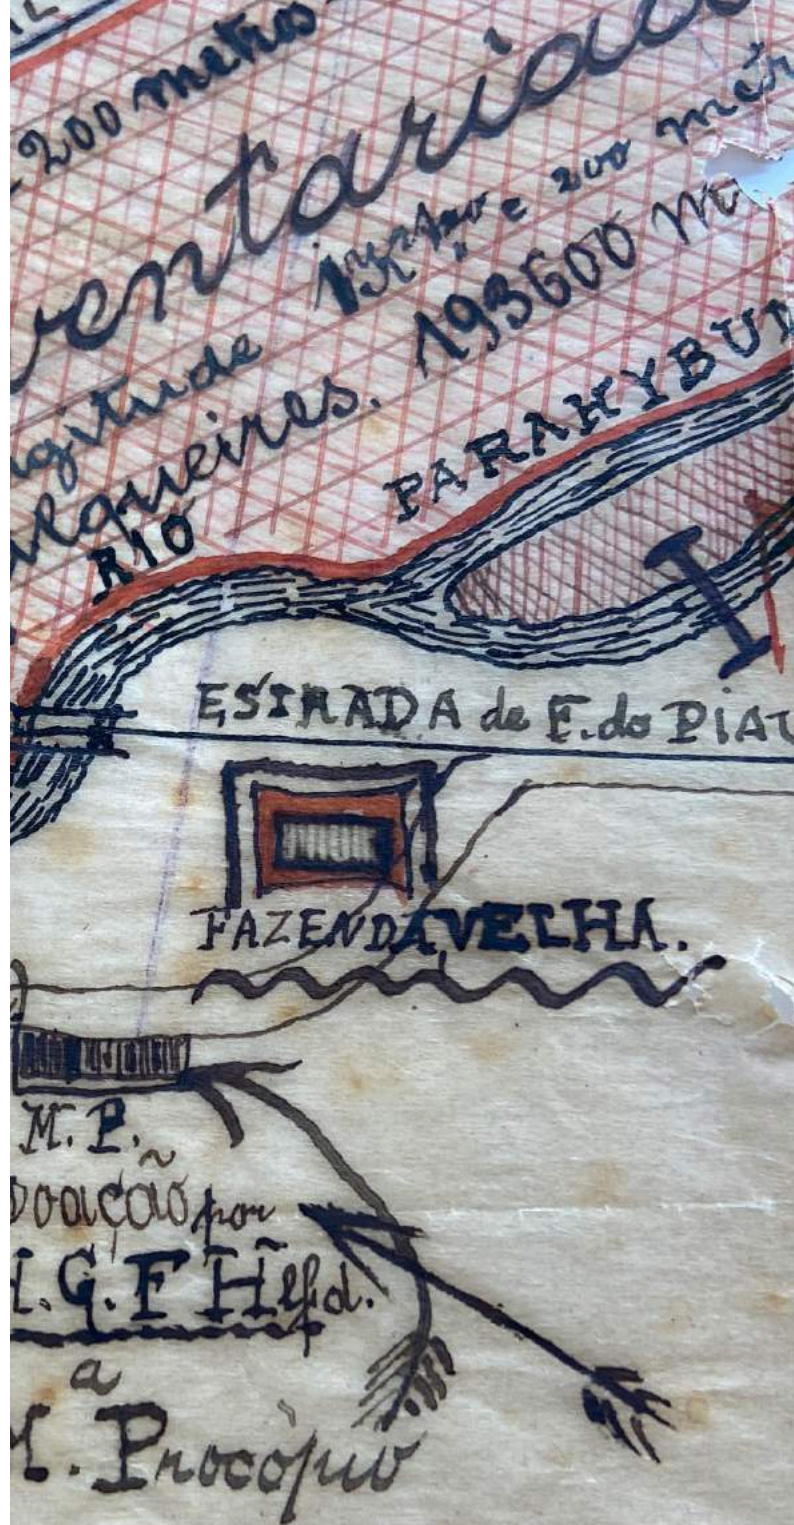 200 metros
ventariad
gitude 1 e 200 met
alqueires. 193600 m
RIO PARAHYBUN
ESTRADA de F. do PIAU
FAZENDA VELHA.
M. P.
Doação por
H. G. F. Hlfd.
a
M. Procópio